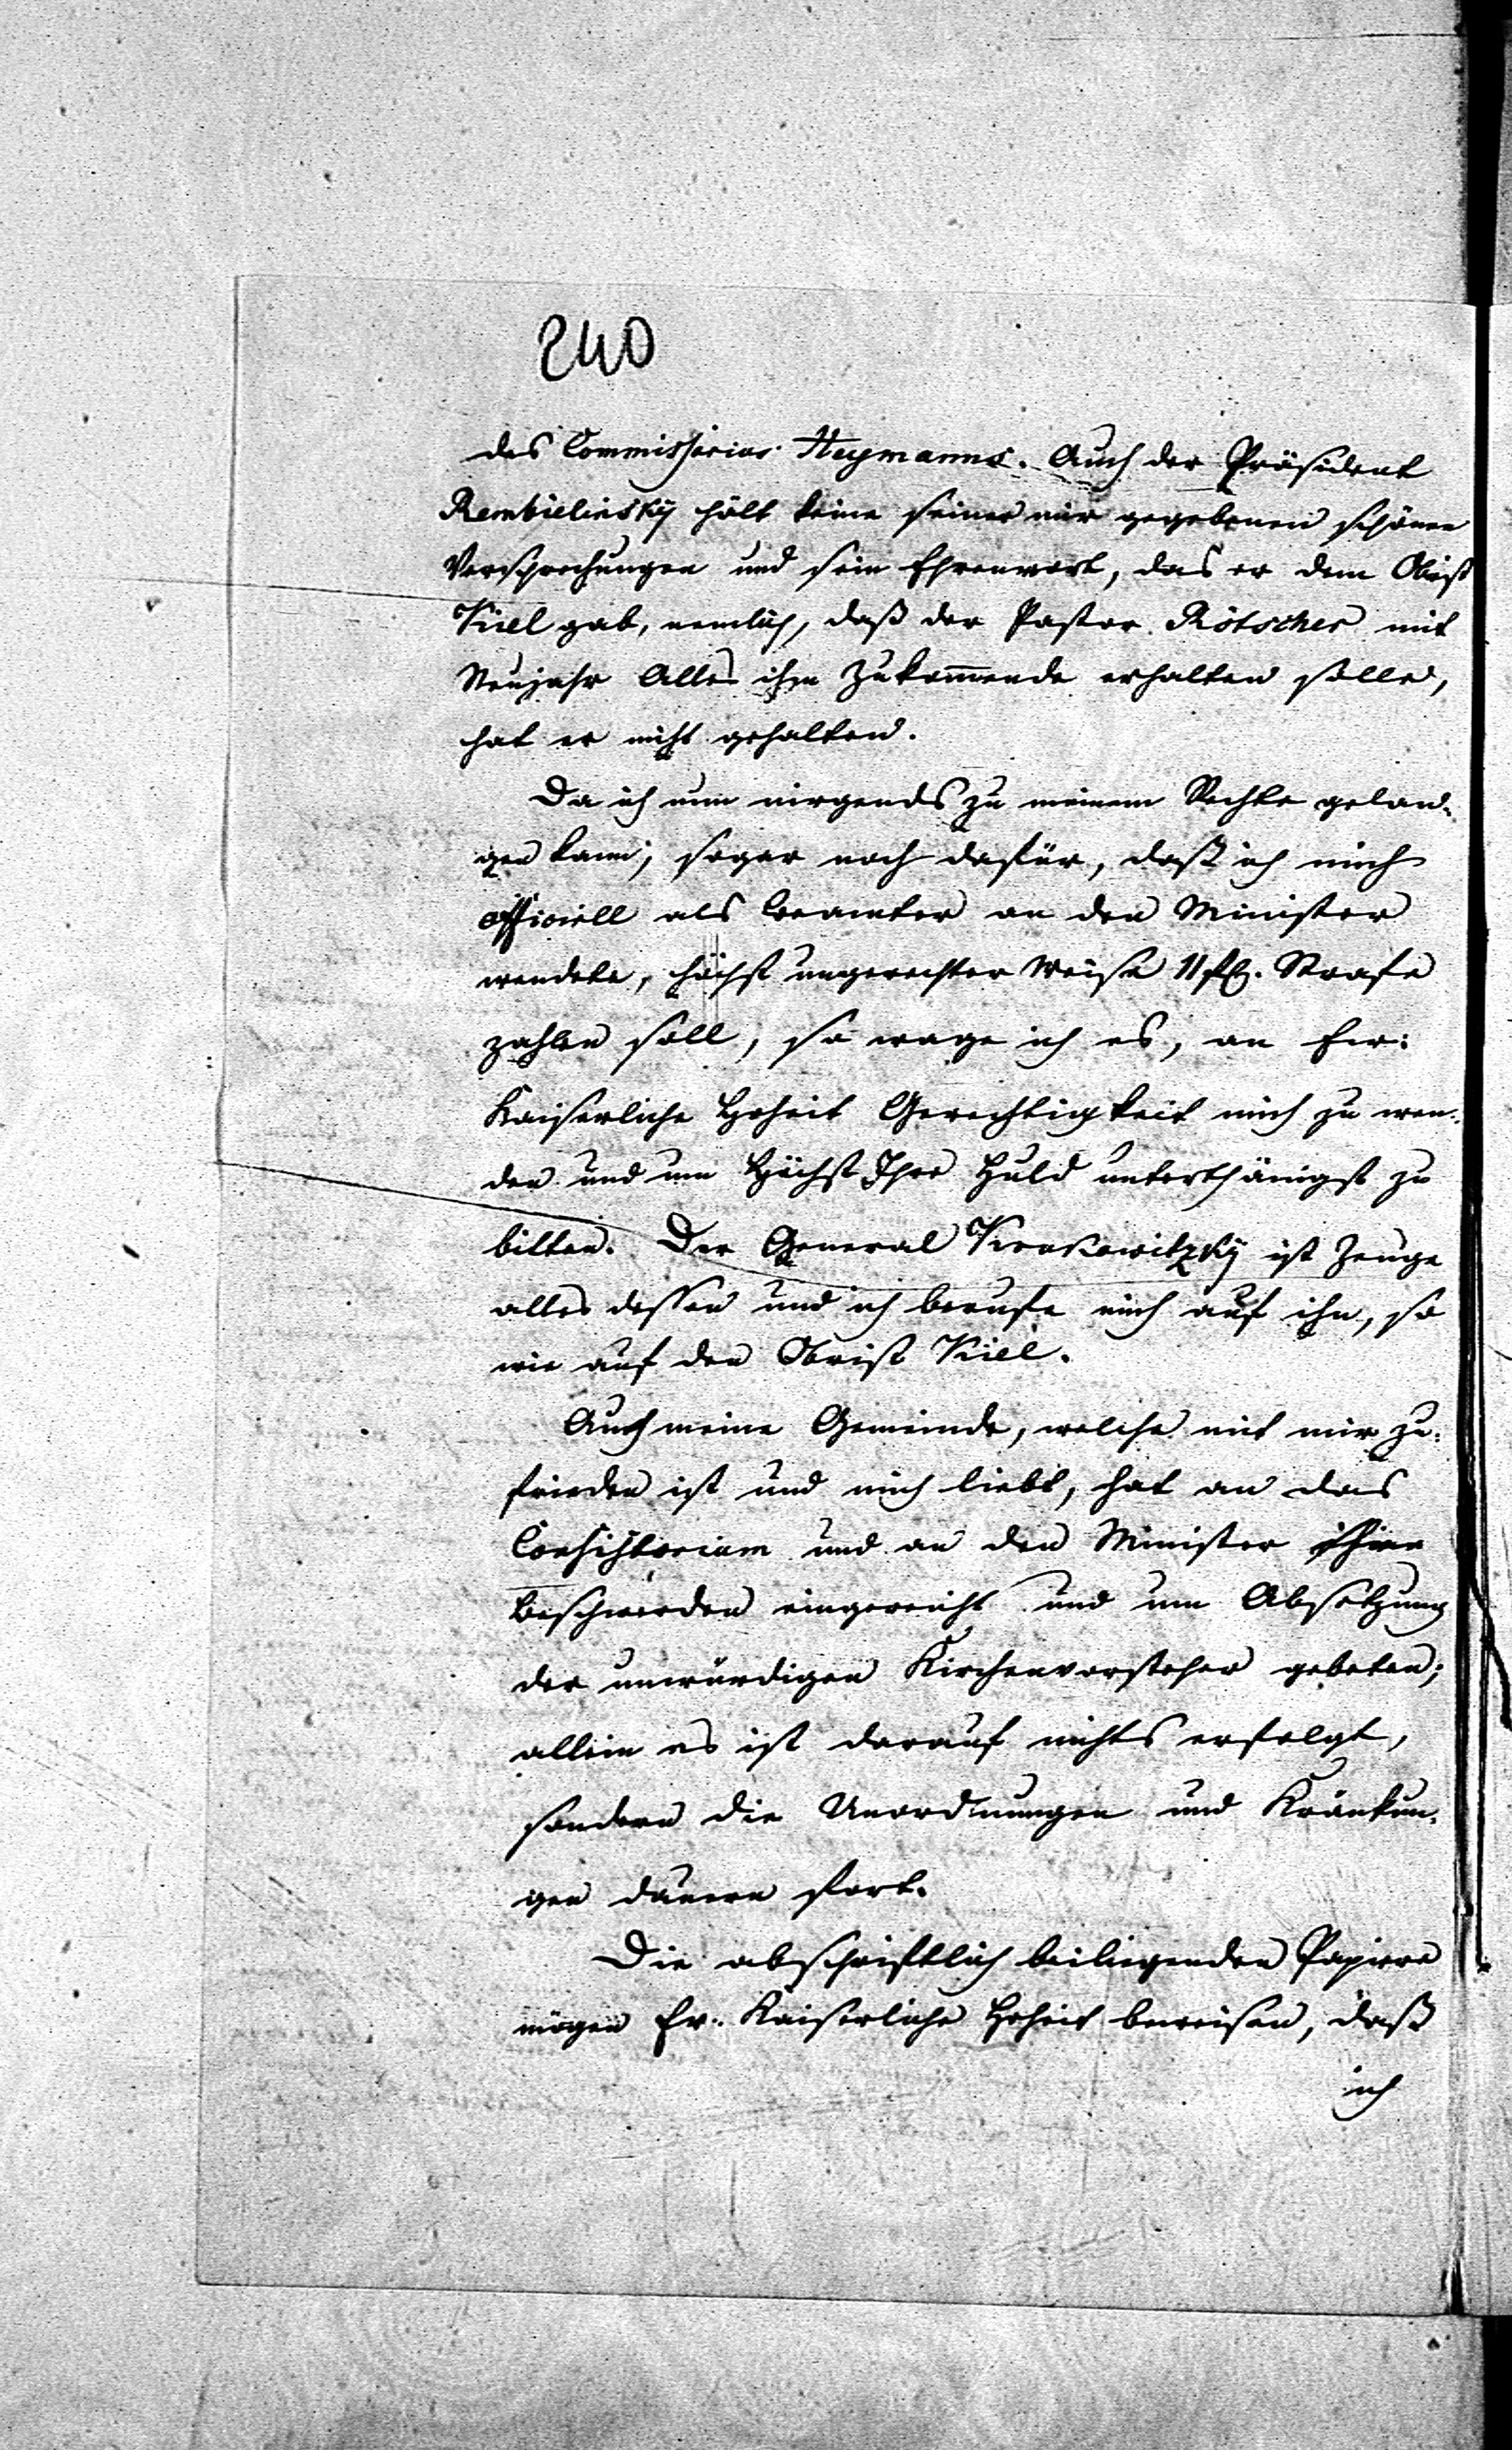 240
des Commissarius Heymanns. Auch der Präsident
Rembielinsky hält keine seiner mir gegebenen schönen
Versprechungen und sein Ehrenwort, das er dem Obrist
Kiel gab, nemlich, daß der Pastor Rötscher mit
Neujahr Alles ihm Zukom̅ende erhalten solle,
hat er nicht gehalten.
Da ich nun nirgends zu meinem Rechte gelan-
gen kann, sogar noch dafür, daß ich mich
officiell als Beamter an den Minister
wendete, höchst ungerechter Weise 11 Strafe
zahlen soll, so wage ich es, an Ew:
Kaiserliche Hoheit Gerechtigkeit mich zu wen-
den und um Höchst Ihre Huld unterthänigst zu
bitten. Der General ist Zeuge
alles dessen und ich berufe mich auf ihn, so
wie auf den Obrist Kiel.
Auch meine Gemeinde, welche mit mir zu-
frieden ist und mich liebt, hat an das
Consistorium und an den Minister ihre
Beschwerden eingereicht und um Absetzung
der unwürdigen Kirchenvorsteher gebeten;
allein es ist darauf nichts erfolgt,
sondern die Unordnungen und Kränkun-
gen dauern fort.
Die abschriftlich beiliegenden Papiere
mögen Ew: Kaiserliche Hoheit beweisen, daß
ich